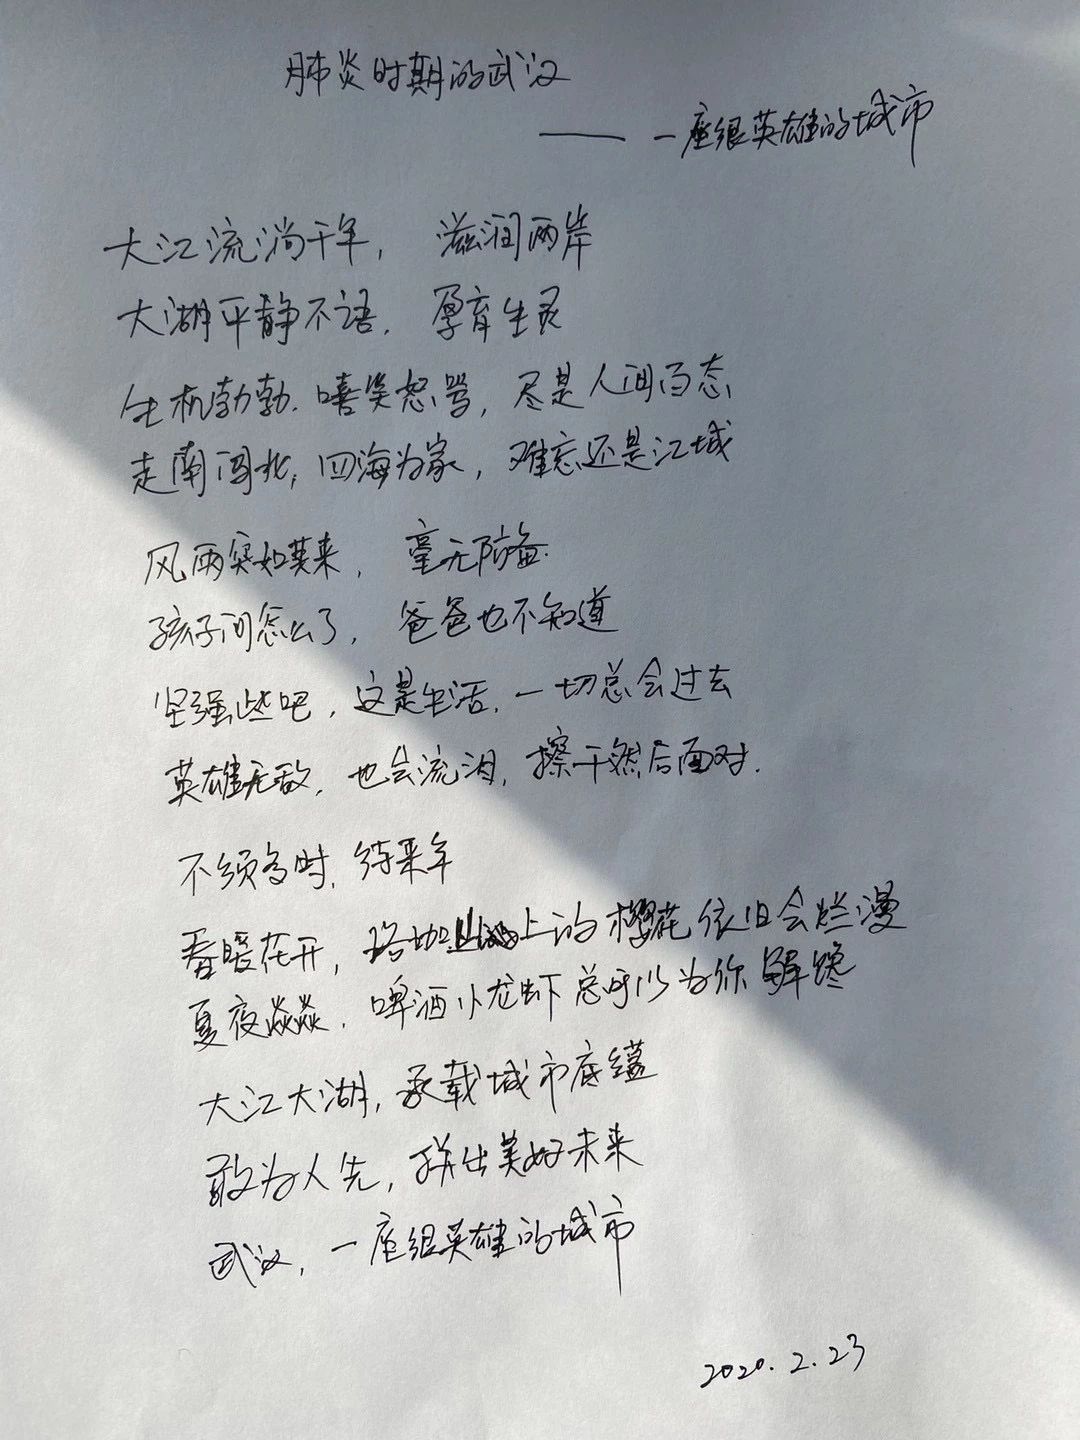 肺炎时期的武汉
—— 一座很英雄的城市
大江流淌千年, 滋润两岸
大湖平静不语, 孕育生灵
生机勃勃, 嘻笑怒骂, 尽是人间百态
走南闯北, 四海为家, 难忘还是江城
风雨突如其来, 毫无防备.
孩子问怎么了, 爸爸也不知道
坚强些吧, 这是生活, 一切总会过去
英雄无敌, 也会流泪, 擦干然后面对.
不须多时, 待来年
春暖花开, 珞珈山上的樱花依旧会烂漫
夏夜焱焱, 啤酒小龙虾总可以为你解馋
大江大湖, 承载城市底蕴
敢为人先, 拼出美好未来
武汉, 一座很英雄的城市
2020.2.23